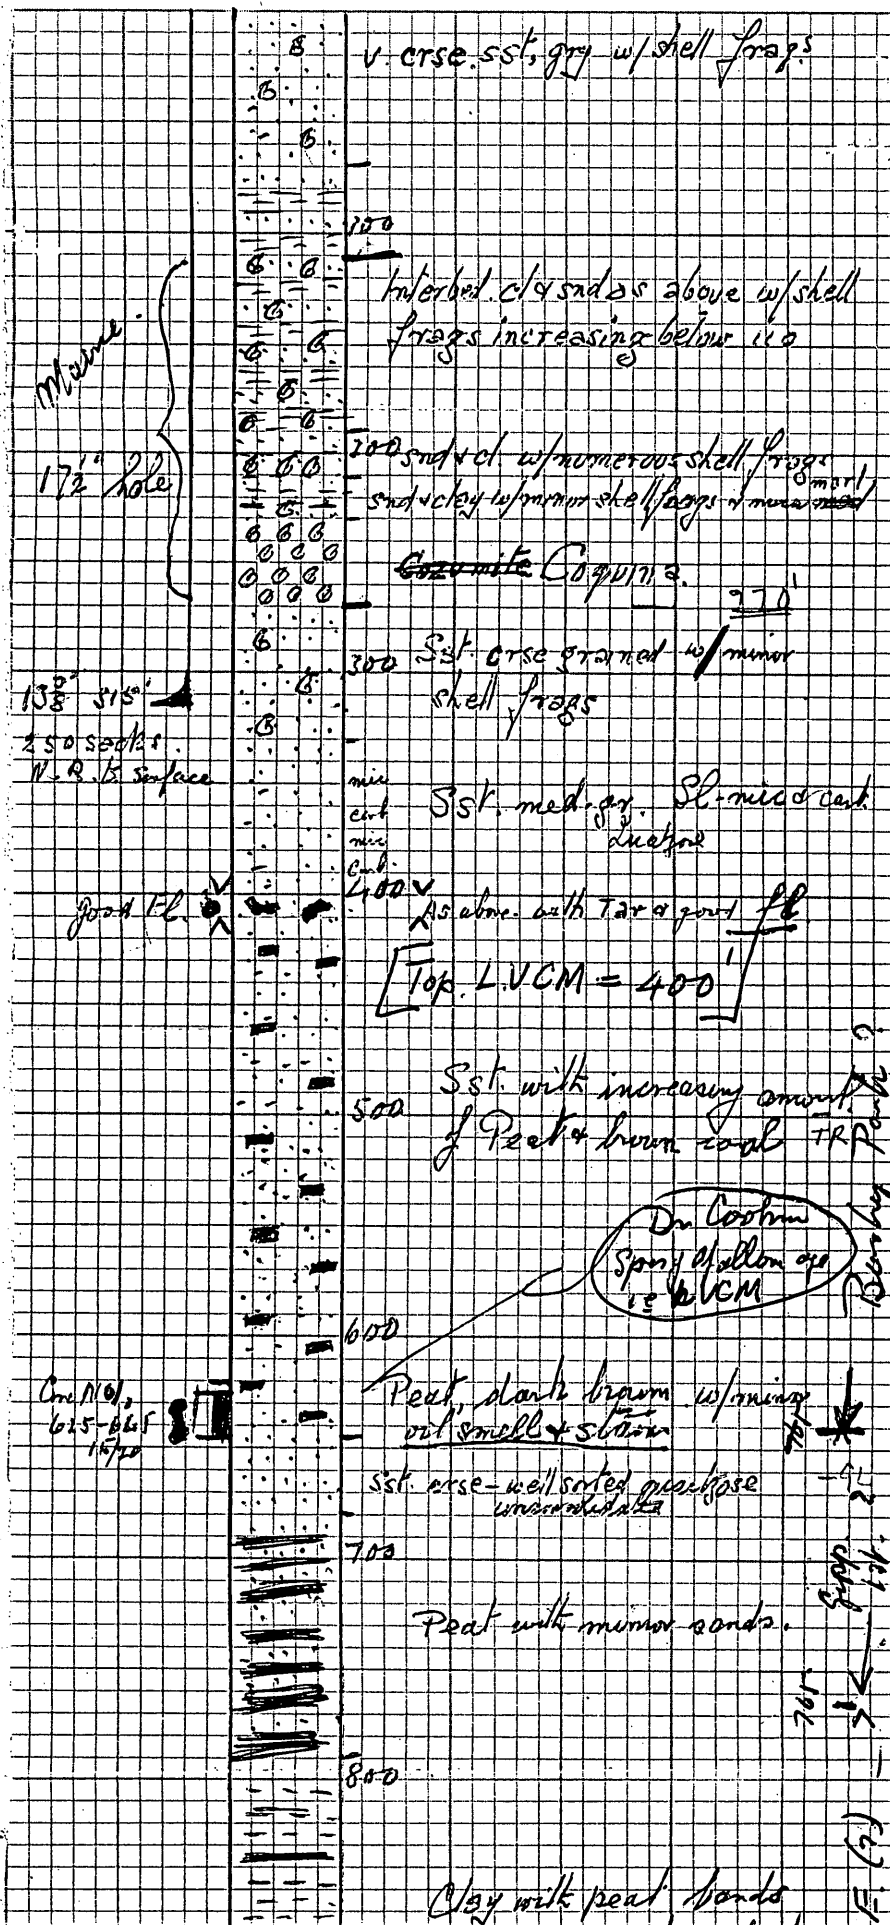 v. crse. sst, gry w/ shell frags
100
Interbed. cl & snd as above w/ shell
frags increasing below 110
Marine.
17½" hole
200 snd & cl. w/ numerous shell frags
marl
snd & clay w/ minor shell frags &
Coquina.
270'
300 Sst. crse grained w/ minor
shell frags
13⅜" 315'
250 sacks.
surface
mic
carb
mic
carb.
Sst. med. gr. Sl. mic & carb.
400
good Fl.
As above. with Tar & good fl
[Top. L.V.C.M = 400']
Sst. with increasing amount
500
of Peat & brown coal TR
Dr Cookson
age
ie VCM
600
Core No 1.
625-645
15/20
Peat, dark brown w/ minor
oil smell & stain
Sst. crse - well sorted quartzose
unconsolidated
700
Peat with minor sands.
800
Clay with peat bands